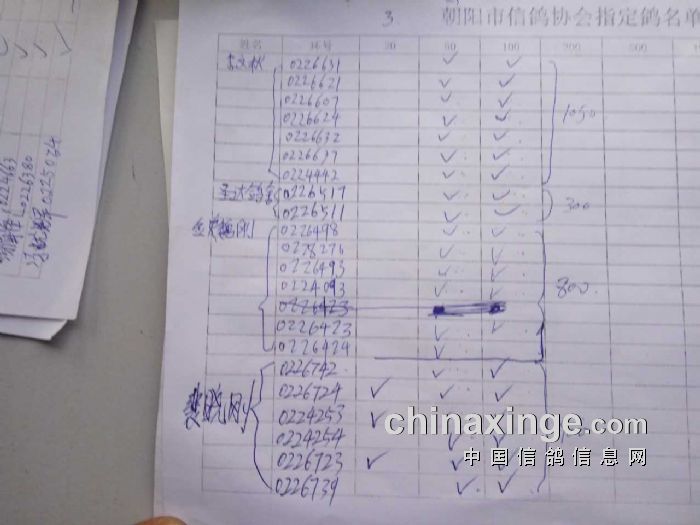 3 朝阳市信鸽协会指定鸽名单
姓名 环号 20 50 100 200 500
0226631
0226621
0226607
0226624
0226632
0226637
0224442
1050
0226517
0226511
300
0226498
0278276
0226493
0224093
0226423
0226423
0226424
800
刚 0226742
0226724
0224253
0224254
0226723
0226739
0226380
0225064
chinaxinge.com
中国信鸽信息网